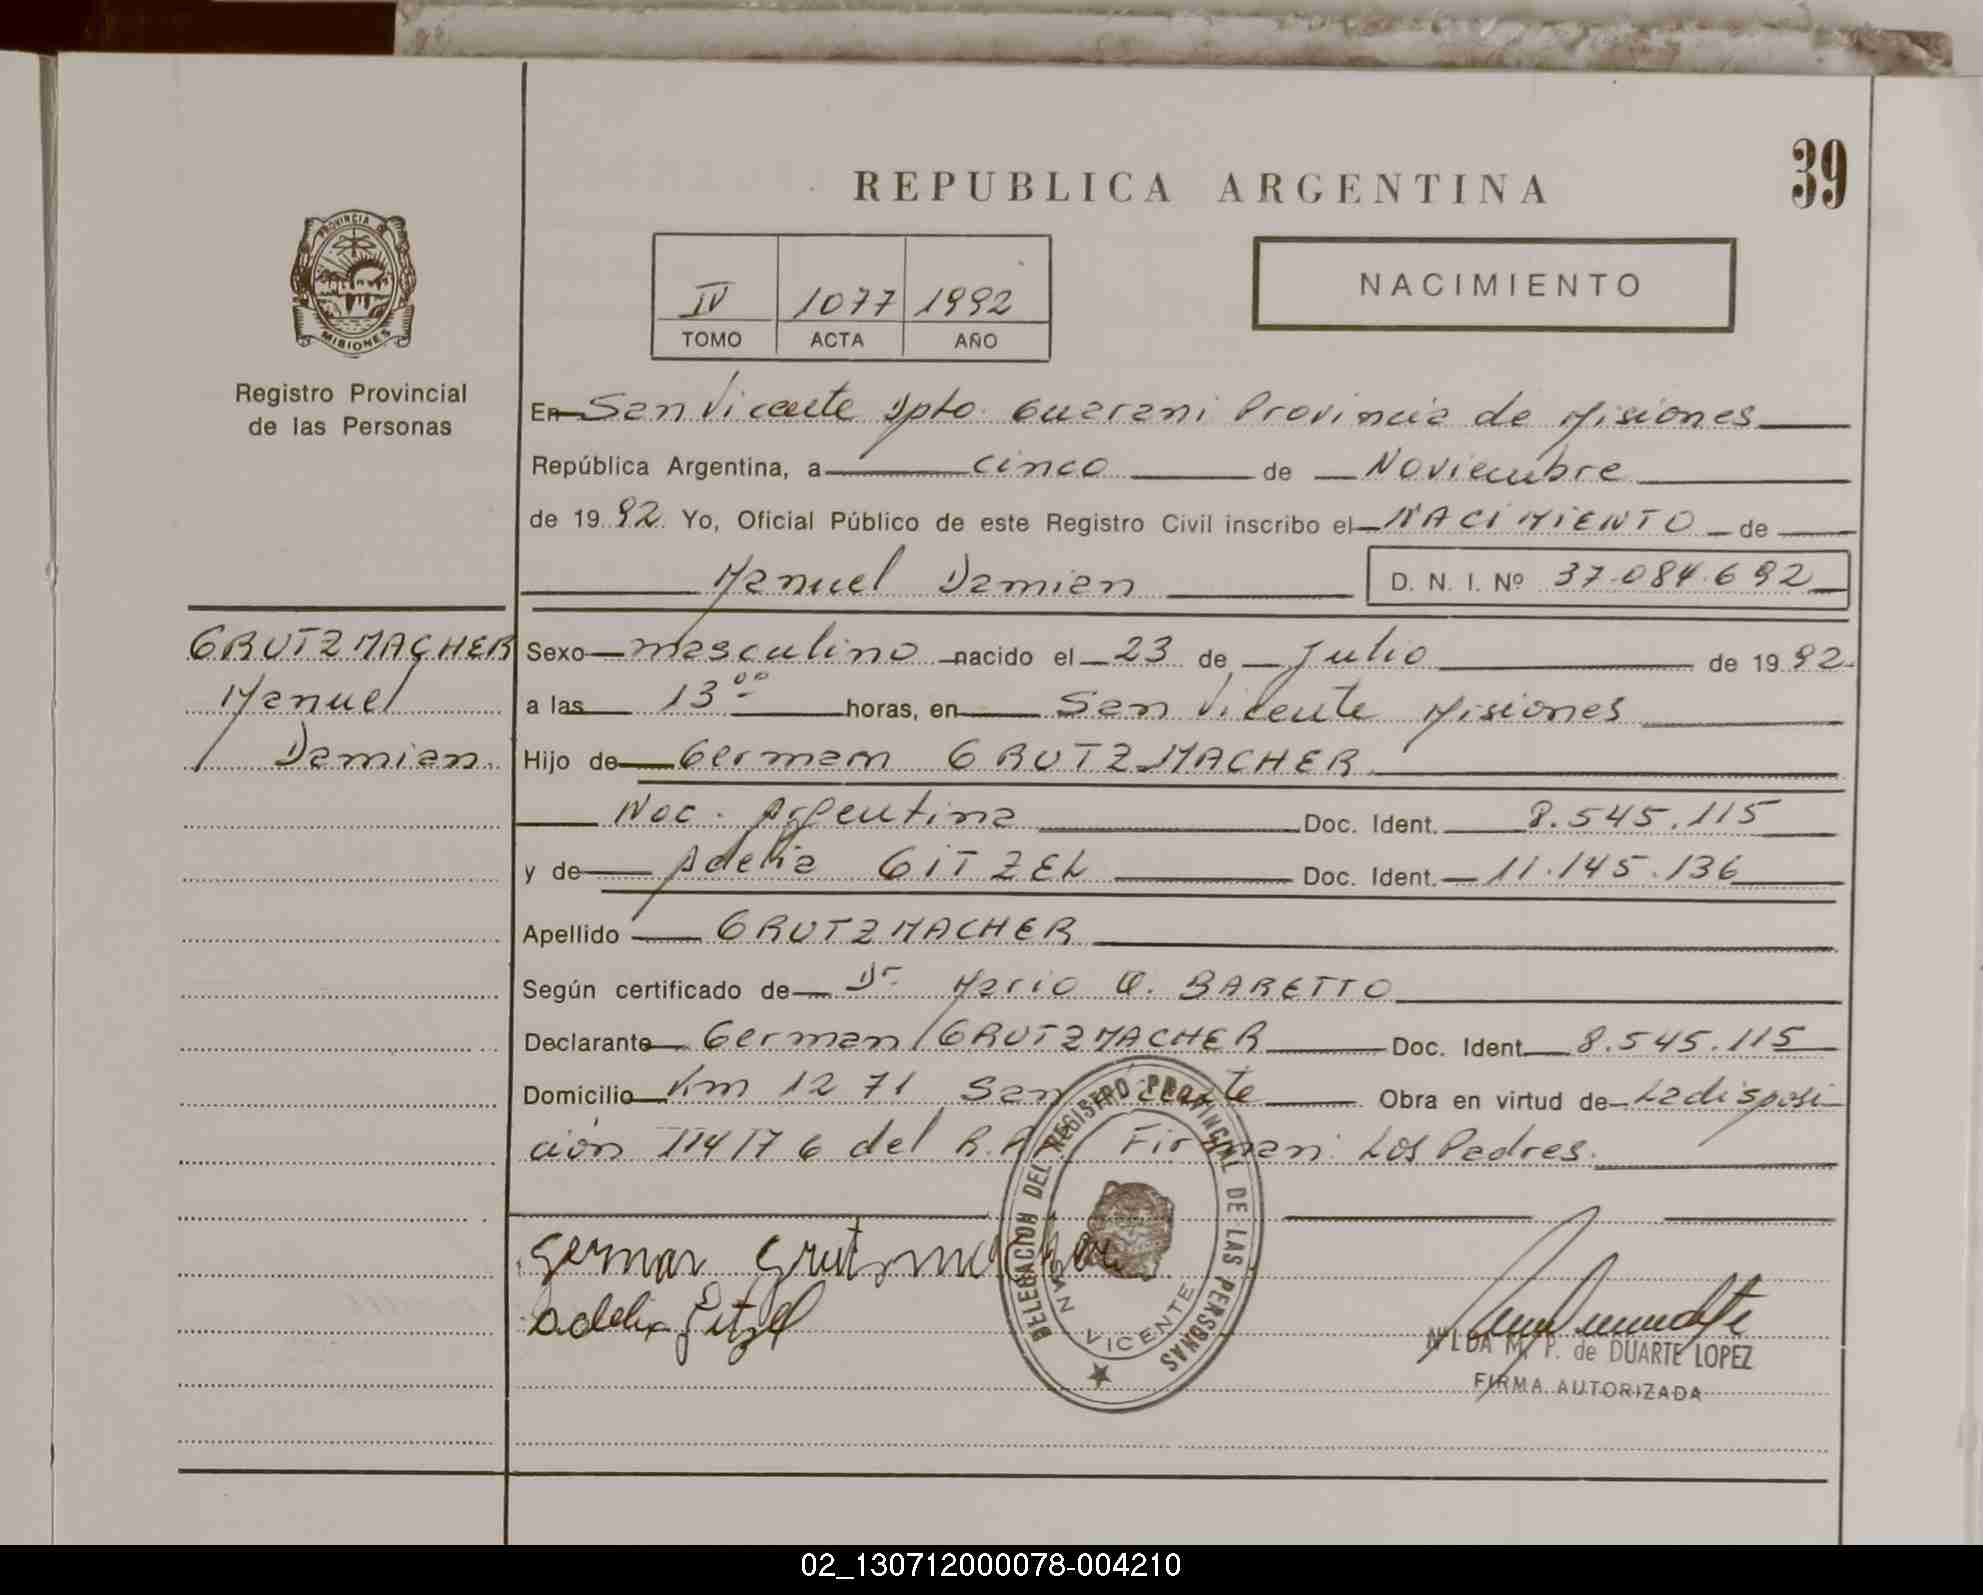 39
REPUBLICA ARGENTINA
PROVINCIA
MISIONES
IV 1077 1992
TOMO ACTA AÑO
NACIMIENTO
Registro Provincial
de las Personas
En San Vicente Dpto. Guarani Provincia de Misiones
República Argentina, a cinco de Noviembre
de 1992. Yo, Oficial Público de este Registro Civil inscribo el NACIMIENTO de
Manuel Damian D. N. I. Nº 37.084.692
GRUTZMACHER
Manuel
Damian
Sexo masculino nacido el 23 de Julio de 1992
a las 13 00 horas, en San Vicente Misiones
Hijo de German GRUTZMACHER
Nac. Argentina Doc. Ident. 8.545.115
y de Adelia GITZEL Doc. Ident. 11.145.136
Apellido GRUTZMACHER
Según certificado de Dr. Mario BARETTO
Declarante German GRUTZMACHER Doc. Ident. 8.545.115
Domicilio Km 1271 San Vicente Obra en virtud de La disposi-
ción del Firman: Los Padres.
DELEGACION DEL REGISTRO PROVINCIAL DE LAS PERSONAS
SAN VICENTE
German Grutzmacher
Adelia Gitzel
NILDA M. P. de DUARTE LOPEZ
FIRMA AUTORIZADA
02_130712000078-004210